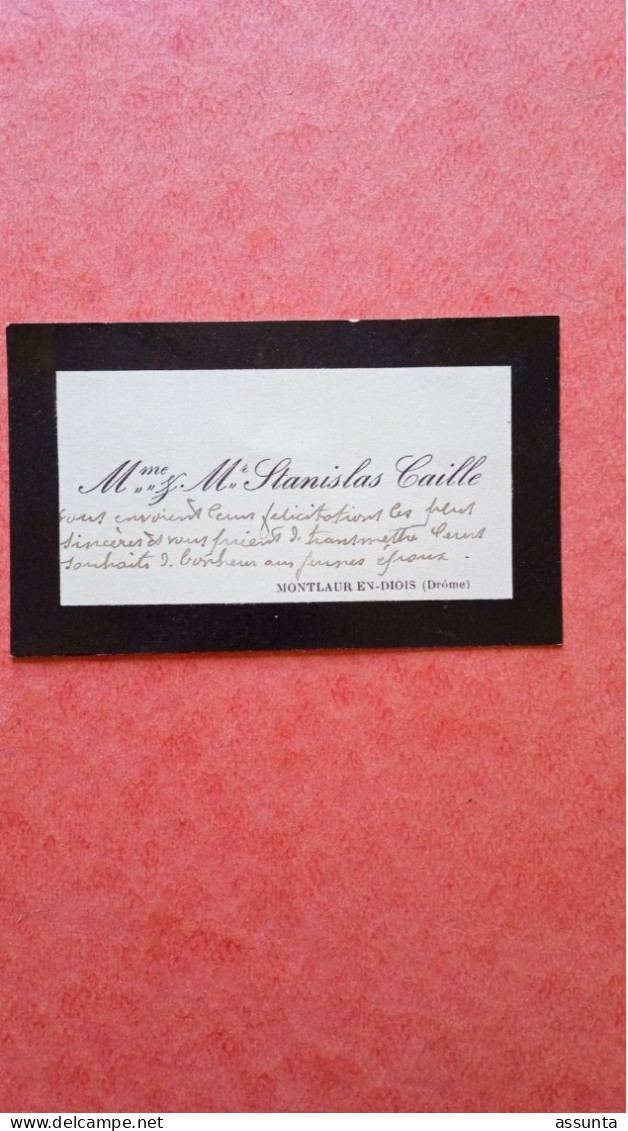 Mme & Mr Stanislas Caille
vous envoient leurs félicitations les plus
sincères et vous prient de transmettre leurs
souhaits de bonheur aux jeunes époux.
MONTLAUR EN-DIOIS (Drôme)
delcampe.net
assunta